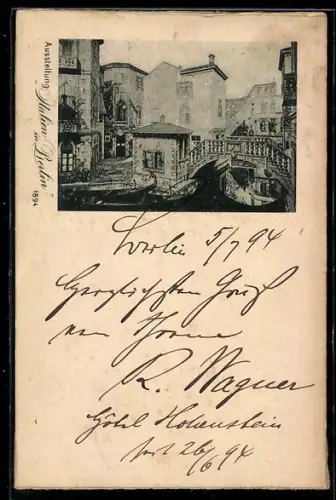 Ausstellung „Italien in Berlin" 1894
Berlin 5/7 94
Herzlichsten Gruß
von Ihrem
R. Wagner
Hôtel Hohenstein
seit 26/6 94